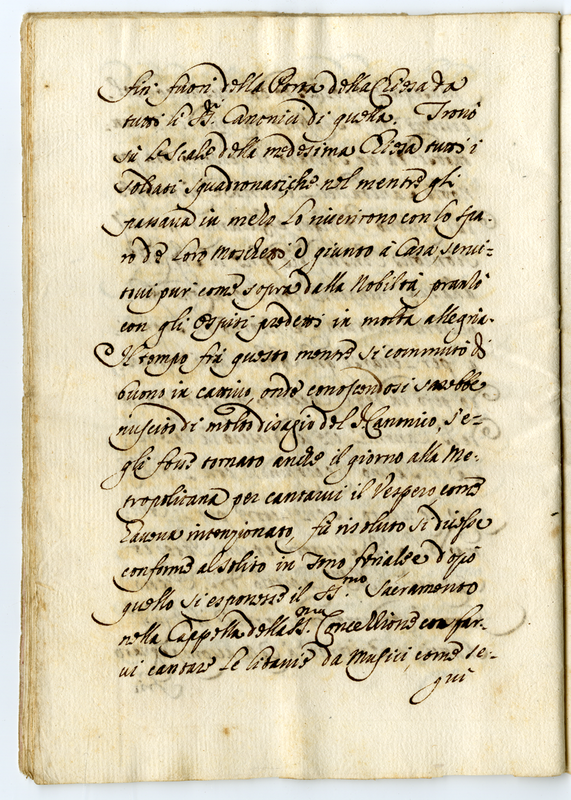 fin' fuori della Porta della Chiesa da
tutti li SS.ri Canonici di quella. Trovò
sù le Scale della medesima Chiesa tutti i
Soldati squadronati, che nel mentre gli
passava in mezo lo riverirono con lo spa-
ro de loro Moschetti, e giunto à Casa servi-
tovi pur come sopra dalla Nobiltà, pranzò
con gli Ospiti predetti in molta allegria.
Il tempo frà questo mentre si commutò di
buono in cattivo, onde conoscendosi sarebbe
riuscito di molto disagio del S. Canonico, s'e-
gli fosse tornato anche il giorno alla Me-
tropolitana per cantarvi il Vespero come
haveva intenzionato, fù risoluto si dicesse
conforme al solito in Tono feriale e dopò
quello si esponesse il SS.mo Sacramento
nella Cappella della SS.ma Concezzione con far-
vi cantare le litanie da Musici, come se-
guì